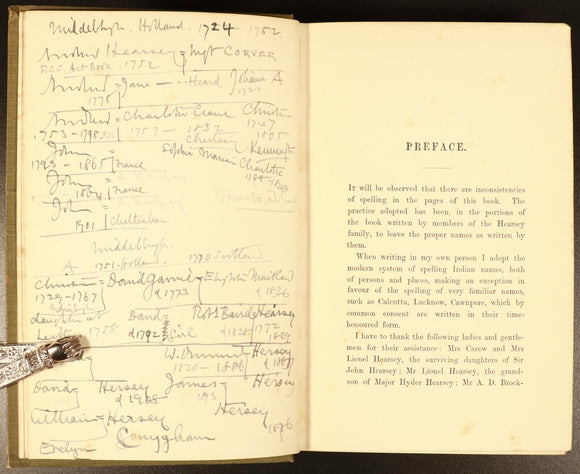 Middelbugh. Holland. 1724 1752
Andrew Hearsey = Mgt CORVER
P.C.C. Act Book. 1752
Andrew = Jane = Heard Johanna A
1778 1724
Andrew = Charlotte Crane Christina
1753-1798 1757- 1832 1727
Chertsey 1805
John = Kennington
1793-1865 France Sophia Maria Charlotte
John =
1864 France
John =
1901 Cheltenham
Middelbugh.
A 1751. Holland. 1790 Scotland
Christina = David Elizabeth Maitland
1729-1767 d 1773 d 1836
daughter at David = Baird Hearsey
1758 d 1792 d 1828 1772
Hersey
1820-1886
David Hersey James Hersey
d 1908
William = Hersey Hersey
Conyngham 1896
Evelyn
PREFACE.
It will be observed that there are inconsistencies
of spelling in the pages of this book. The
practice adopted has been, in the portions of
the book written by members of the Hearsey
family, to leave the proper names as written by
them.
When writing in my own person I adopt the
modern system of spelling Indian names, both
of persons and places, making an exception in
favour of the spelling of very familiar names,
such as Calcutta, Lucknow, Cawnpore, which by
common consent are written in their time-
honoured form.
I have to thank the following ladies and gentle-
men for their assistance: Mrs Carew and Mrs
Lionel Hearsey, the surviving daughters of Sir
John Hearsey; Mr Lionel Hearsey, the grand-
son of Major Hyder Hearsey; Mr A. D. Brock-